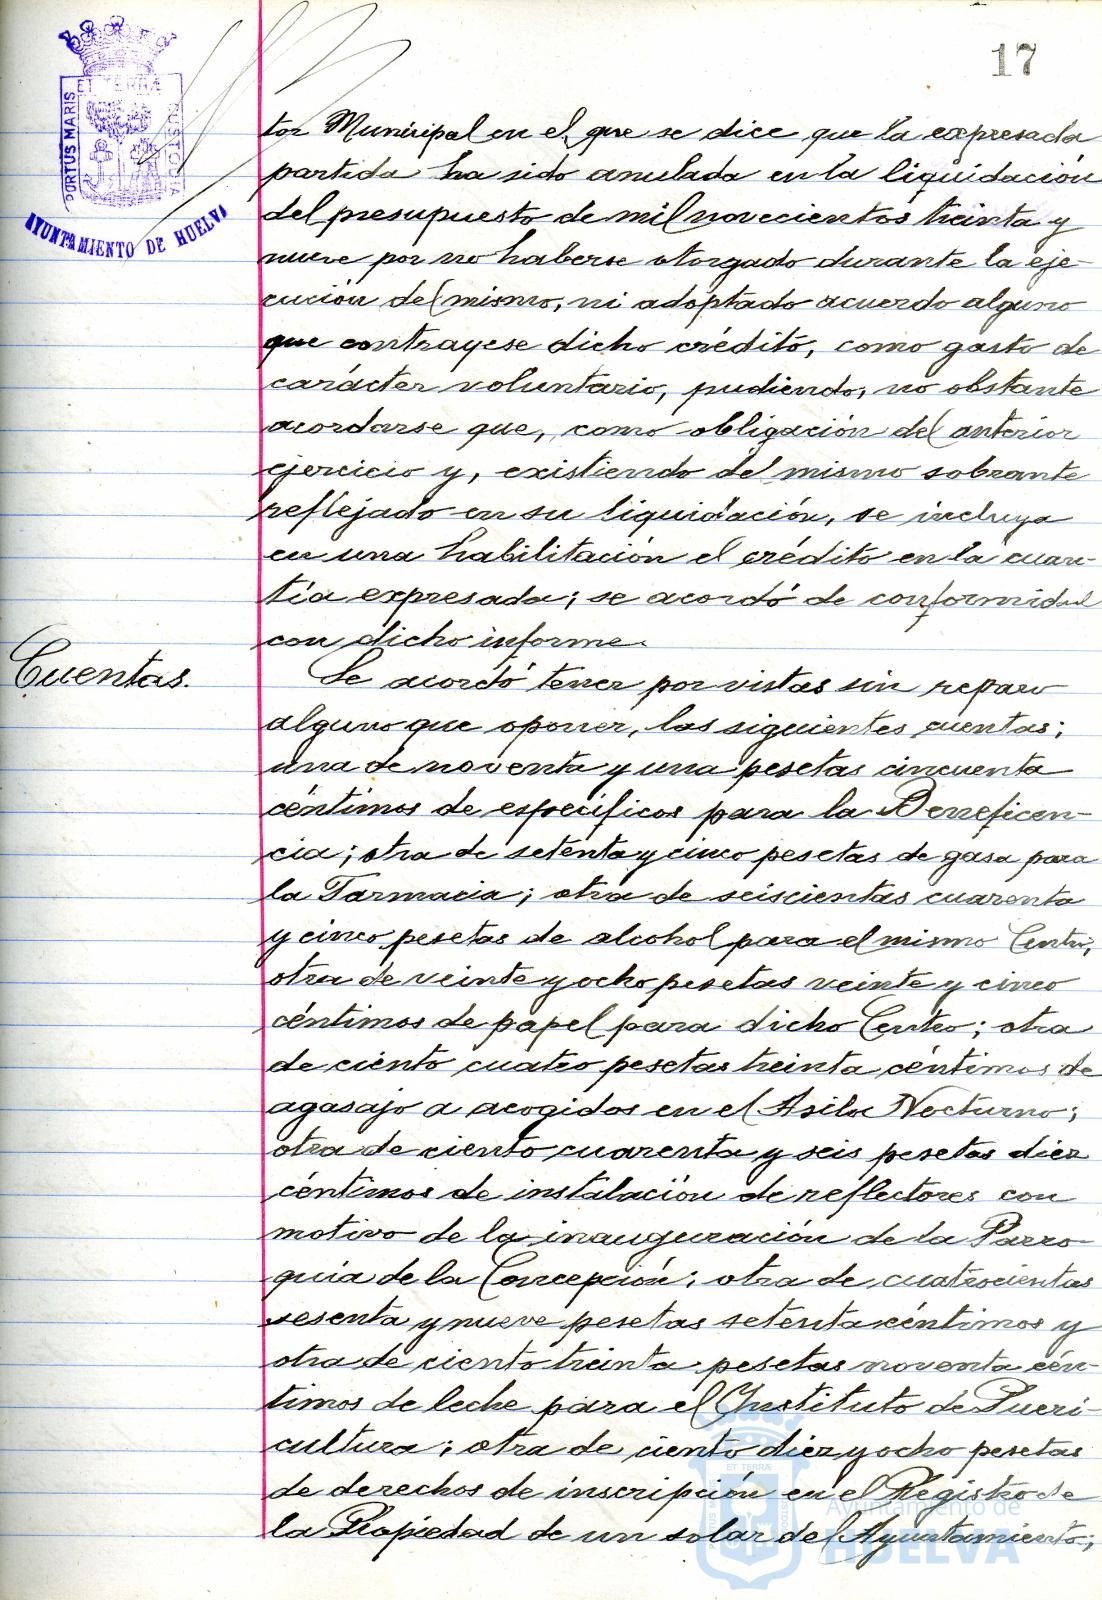 17
PORTUS MARIS
ET TERRÆ
CUSTODIA
AYUNTAMIENTO DE HUELVA
tor Municipal en el que se dice que la expresada
partida ha sido anulada en la liquidación
del presupuesto de mil novecientos treinta y
nueve por no haberse otorgado durante la eje-
cución del mismo, ni adoptado acuerdo alguno
que contrayese dicho crédito, como gasto de
carácter voluntario, pudiendo, no obstante
acordarse que, como obligación del anterior
ejercicio y, existiendo del mismo sobrante
reflejado en su liquidación, se incluya
en una habilitación el crédito en la cuan-
tía expresada; se acordó de conformidad
con dicho informe.
Cuentas.
Se acordó tener por vistas sin reparo
alguno que oponer, las siguientes cuentas;
una de noventa y una pesetas cincuenta
céntimos de específicos para la Beneficen-
cia; otra de setenta y cinco pesetas de gasa para
la Farmacia; otra de seiscientas cuarenta
y cinco pesetas de alcohol para el mismo Centro,
otra de veinte y ocho pesetas veinte y cinco
céntimos de papel para dicho Centro; otra
de ciento cuatro pesetas treinta céntimos de
agasajo a acogidos en el Asilo Nocturno;
otra de ciento cuarenta y seis pesetas diez
céntimos de instalación de reflectores con
motivo de la inauguración de la Parro-
quia de la Concepción; otra de cuatrocientas
sesenta y nueve pesetas setenta céntimos y
otra de ciento treinta pesetas noventa cén-
timos de leche para el Instituto de Pueri-
cultura; otra de ciento diez y ocho pesetas
de derechos de inscripción en el Registro de
la Propiedad de un solar del Ayuntamiento;
Ayuntamiento de
HUELVA